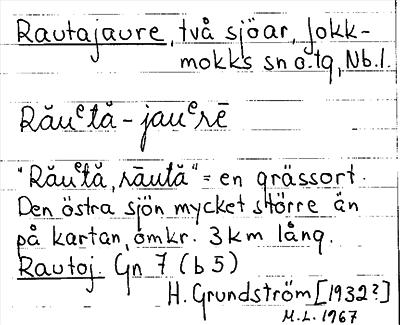 Rautajaure, två sjöar, Jokk-
mokks sn o. tg, Nb. l.
Răuᵉtă-jauᵉrē
"Răuᵉtă, rāută" = en grässort.
Den östra sjön mycket större än
på kartan, omkr. 3 km lång.
Rautoj. Gn 7 (b 5)
H. Grundström [1932?]
M.L. 1967